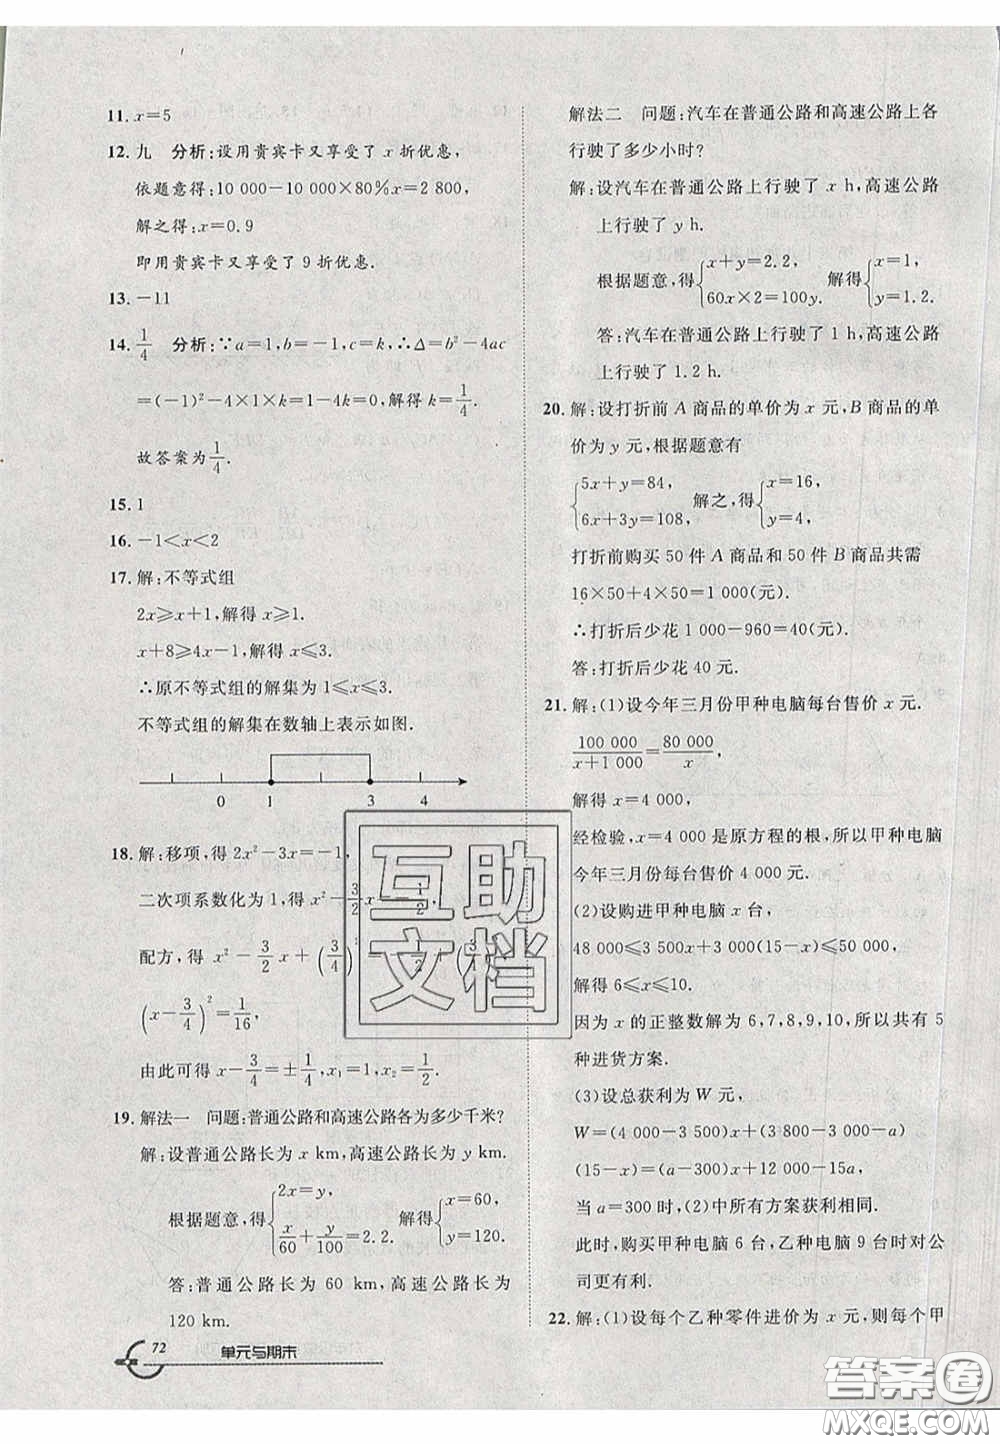 11. x=5
12. 九　分析:设用贵宾卡又享受了 x 折优惠,
依题意得:10 000-10 000×80%x=2 800,
解之得:x=0.9
即用贵宾卡又享受了 9 折优惠.
13. -11
14. 1/4　分析:∵a=1,b=-1,c=k,∴Δ=b²-4ac
=(-1)²-4×1×k=1-4k=0,解得 k=1/4.
故答案为1/4.
15. 1
16. -1<x<2
17. 解:不等式组
2x⩾x+1,解得 x⩾1.
x+8⩾4x-1,解得 x⩽3.
∴原不等式组的解集为 1⩽x⩽3.
不等式组的解集在数轴上表示如图.
0 1 3 4
18. 解:移项,得 2x²-3x=-1,
二次项系数化为 1,得 x²-3/2 x=-1/2,
配方,得 x²-3/2 x+(3/4)²
(x-3/4)²=1/16,
由此可得 x-3/4=±1/4,x₁=1,x₂=1/2.
19. 解法一　问题:普通公路和高速公路各为多少千米?
解:设普通公路长为 x km,高速公路长为 y km.
根据题意,得{2x=y, x/60+y/100=2.2. 解得{x=60, y=120.
答:普通公路长为 60 km,高速公路长为
120 km.
72 单元与期末
解法二　问题:汽车在普通公路和高速公路上各
行驶了多少小时?
解:设汽车在普通公路上行驶了 x h,高速公路
上行驶了 y h.
根据题意,得{x+y=2.2, 60x×2=100y. 解得{x=1, y=1.2.
答:汽车在普通公路上行驶了 1 h,高速公路
上行驶了 1.2 h.
20. 解:设打折前 A 商品的单价为 x 元,B 商品的单
价为 y 元,根据题意有
{5x+y=84, 6x+3y=108, 解之,得{x=16, y=4,
打折前购买 50 件 A 商品和 50 件 B 商品共需
16×50+4×50=1 000(元).
∴打折后少花 1 000-960=40(元).
答:打折后少花 40 元.
21. 解:(1)设今年三月份甲种电脑每台售价 x 元.
100 000/(x+1 000)=80 000/x
解得 x=4 000,
经检验,x=4 000 是原方程的根,所以甲种电脑
今年三月份每台售价 4 000 元.
(2)设购进甲种电脑 x 台,
48 000⩽3 500x+3 000(15-x)⩽50 000,
解得 6⩽x⩽10.
因为 x 的正整数解为 6,7,8,9,10,所以共有 5
种进货方案.
(3)设总获利为 W 元,
W=(4 000-3 500)x+(3 800-3 000-a)
(15-x)=(a-300)x+12 000-15a,
当 a=300 时,(2)中所有方案获利相同.
此时,购买甲种电脑 6 台,乙种电脑 9 台时对公
司更有利.
22. 解:(1)设每个乙种零件进价为 x 元,则每个甲
互助
文档
答案圈
MXQE.COM